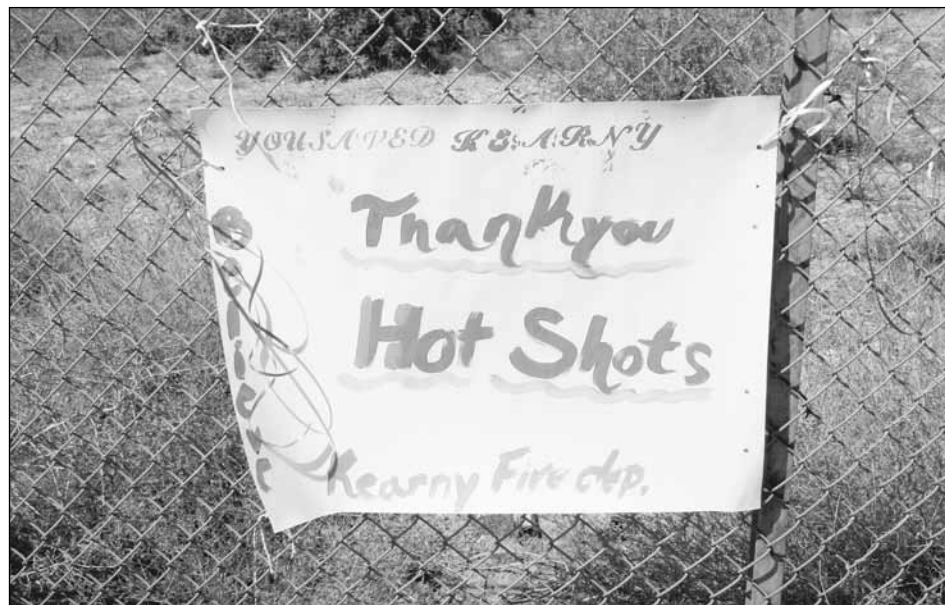 YOU SAVED KEARNY
Thank you
Hot Shots
Kearny Fire dep.